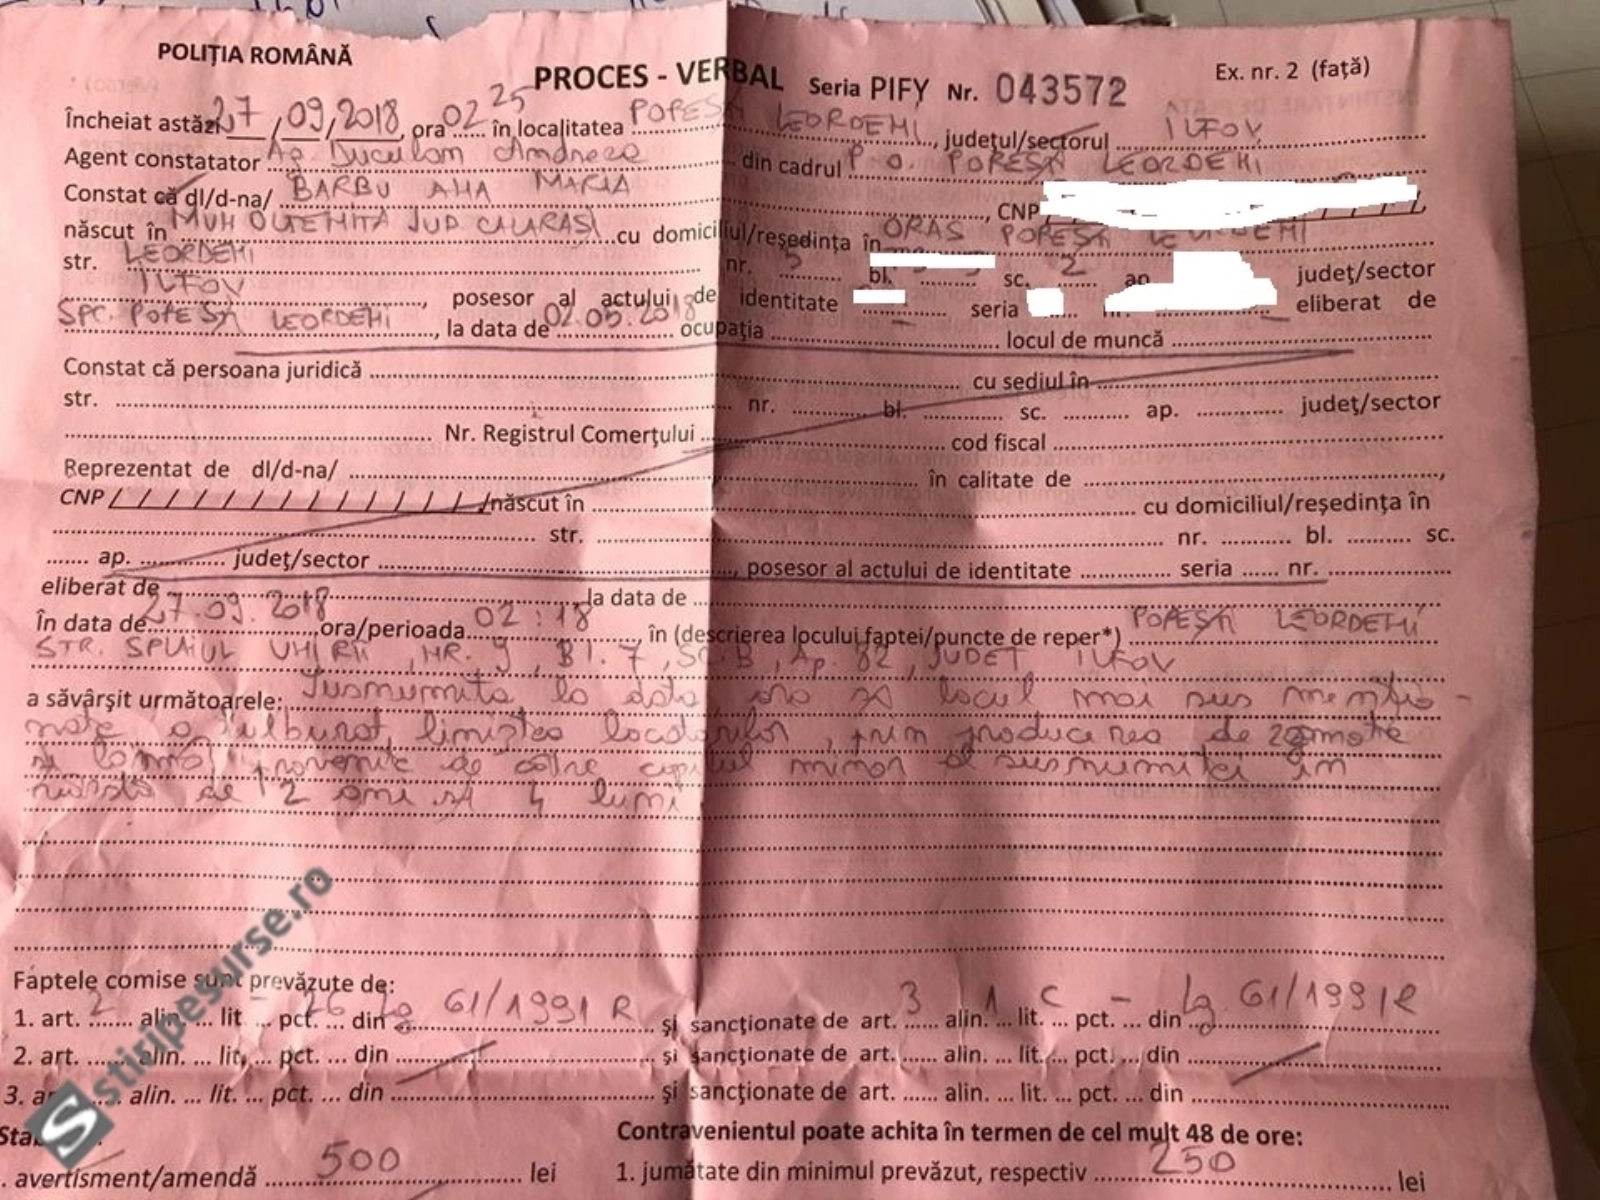 POLIȚIA ROMÂNĂ
PROCES - VERBAL Seria PIFY Nr. 043572 Ex. nr. 2 (față)
Încheiat astăzi 27/09/2018, ora 02 25 în localitatea POPEȘTI LEORDENI, județul/sectorul ILFOV
Agent constatator Ag. Andreea din cadrul P.O. POPEȘTI LEORDENI
Constat că dl/d-na/ BARBU ANA MARIA, CNP
născut în MUN OLTENITA JUD CALARASI cu domiciliul/reședința în ORAS POPEȘTI LEORDENI
str. LEORDENI nr. 5 bl. sc. 2 ap județ/sector
ILFOV, posesor al actului de identitate seria nr. eliberat de
SPC. POPEȘTI LEORDENI, la data de 02.05.2018 ocupația locul de muncă
Constat că persoana juridică cu sediul în
str. nr. bl. sc. ap. județ/sector
Nr. Registrul Comerțului cod fiscal
Reprezentat de dl/d-na/ în calitate de,
CNP / / / / / / / / / / / / / /născut în cu domiciliul/reședința în
str. nr. bl. sc.
ap. județ/sector, posesor al actului de identitate seria nr.
eliberat de la data de
În data de 27.09.2018 ora/perioada 02:18, în (descrierea locului faptei/puncte de reper*) POPEȘTI LEORDENI
STR. SPLAIUL UNIRII, NR. 9, Bl. 7, SC. B, Ap. 82, JUDET ILFOV
a săvârșit următoarele: Susnumita la data ora și locul mai sus mentio-
nate a tulburat liniștea locatarilor, prin producerea de zgomote
și larmă provenite de către copilul minor al susnumitei în
vârstă de 12 ani și 4 luni
Faptele comise sunt prevăzute de:
1. art. 2 alin. ... lit ... pct. 26 din Lg 61/1991 R și sancționate de art. 3 alin. 1 lit. c pct. ... din Lg. 61/1991R
2. art. ...... alin. ... lit. ... pct. ... din și sancționate de art. ...... alin. ... lit. ... pct. ... din
3. ar alin. ... lit. ... pct. ... din și sancționate de art. ...... alin. ... lit. ... pct. ... din
Sta Contravenientul poate achita în termen de cel mult 48 de ore:
. avertisment/amendă 500 lei 1. jumătate din minimul prevăzut, respectiv 250 lei
stiripesurse.ro